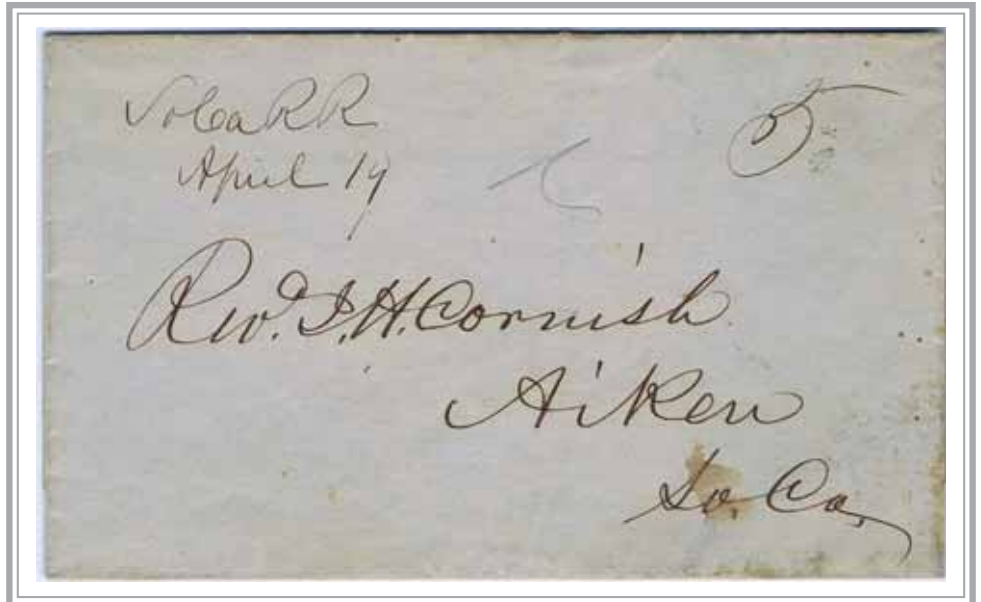 So Ca R R
April 19
5
Rev. J. H. Cornish
Aiken
So. Ca.